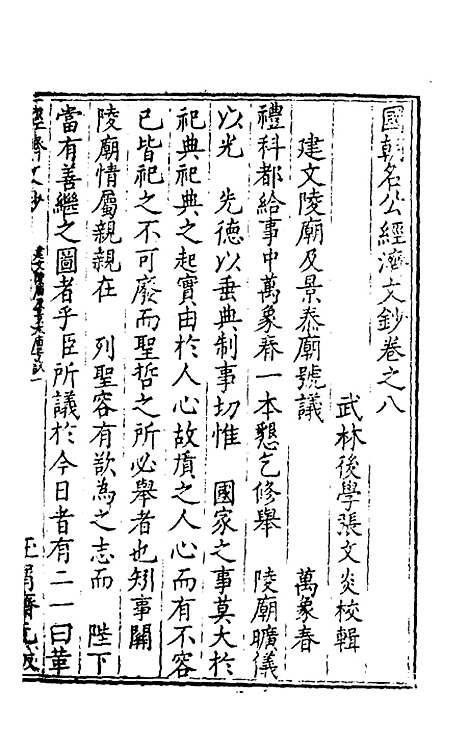 國朝名公經濟文鈔卷之八
武林後學張文炎校輯
建文陵廟及景泰廟號議
萬象春
禮科都給事中萬象春一本懇乞修舉 陵廟曠儀
以光 先德以垂典制事切惟 國家之事莫大於
祀典祀典之起實由於人心故質之人心而有不容
已皆祀之不可廢而聖哲之所必舉者也矧事關
陵廟情屬親親在 列聖容有欲為之志而 陛下
當有善繼之圖者乎臣所議於今日者有二一曰革
經濟文鈔